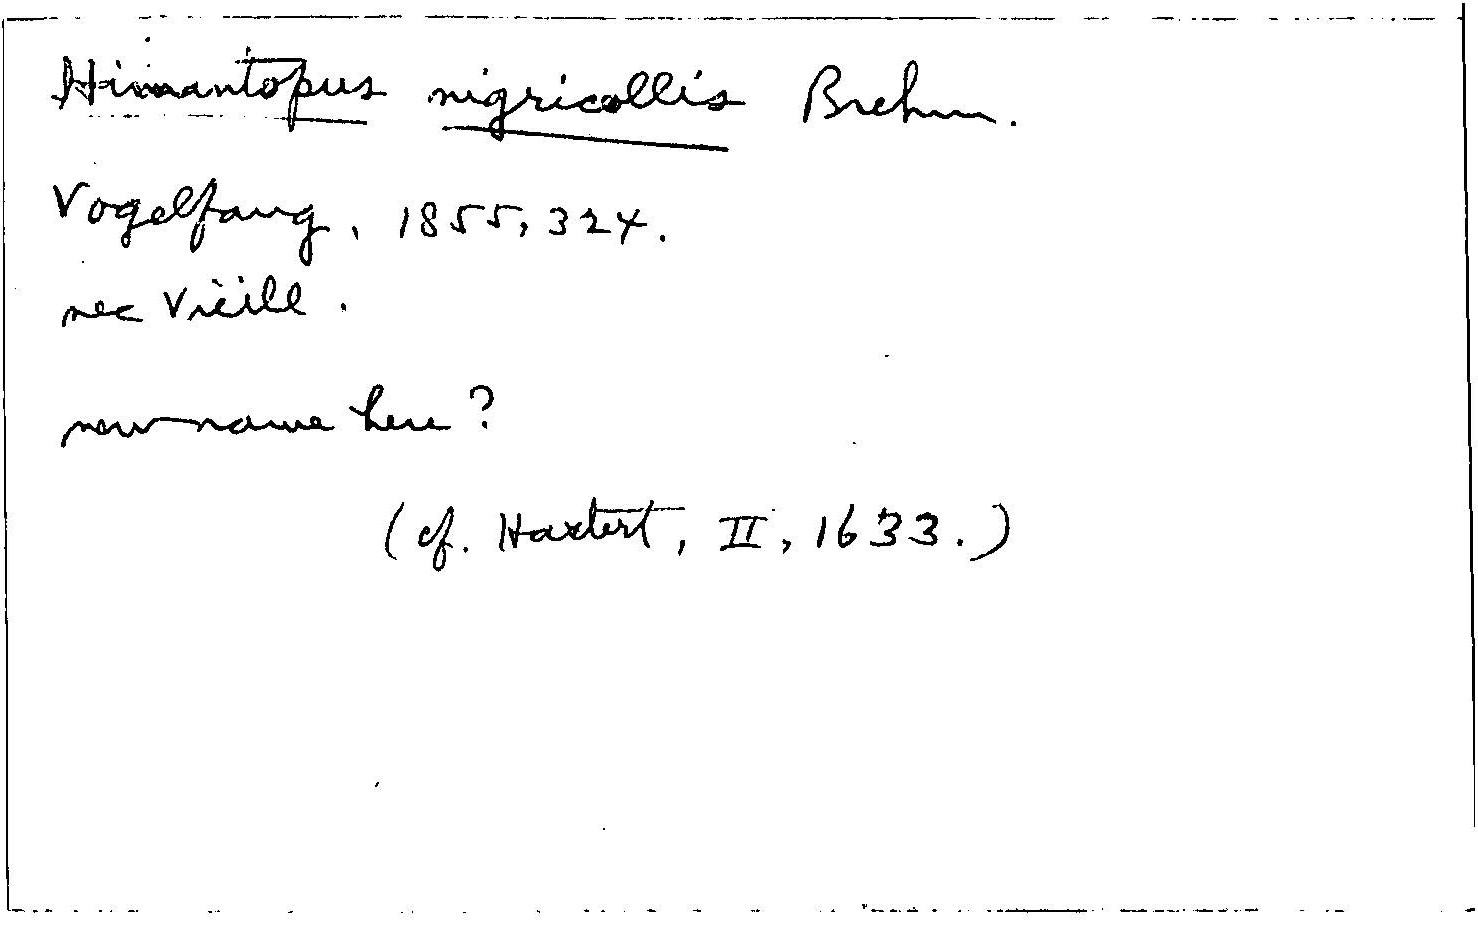 Himantopus nigricollis Brehm.
Vogelfang, 1855, 324.
nec Vieill.
new name here?
(cf. Hartert, II, 1633.)